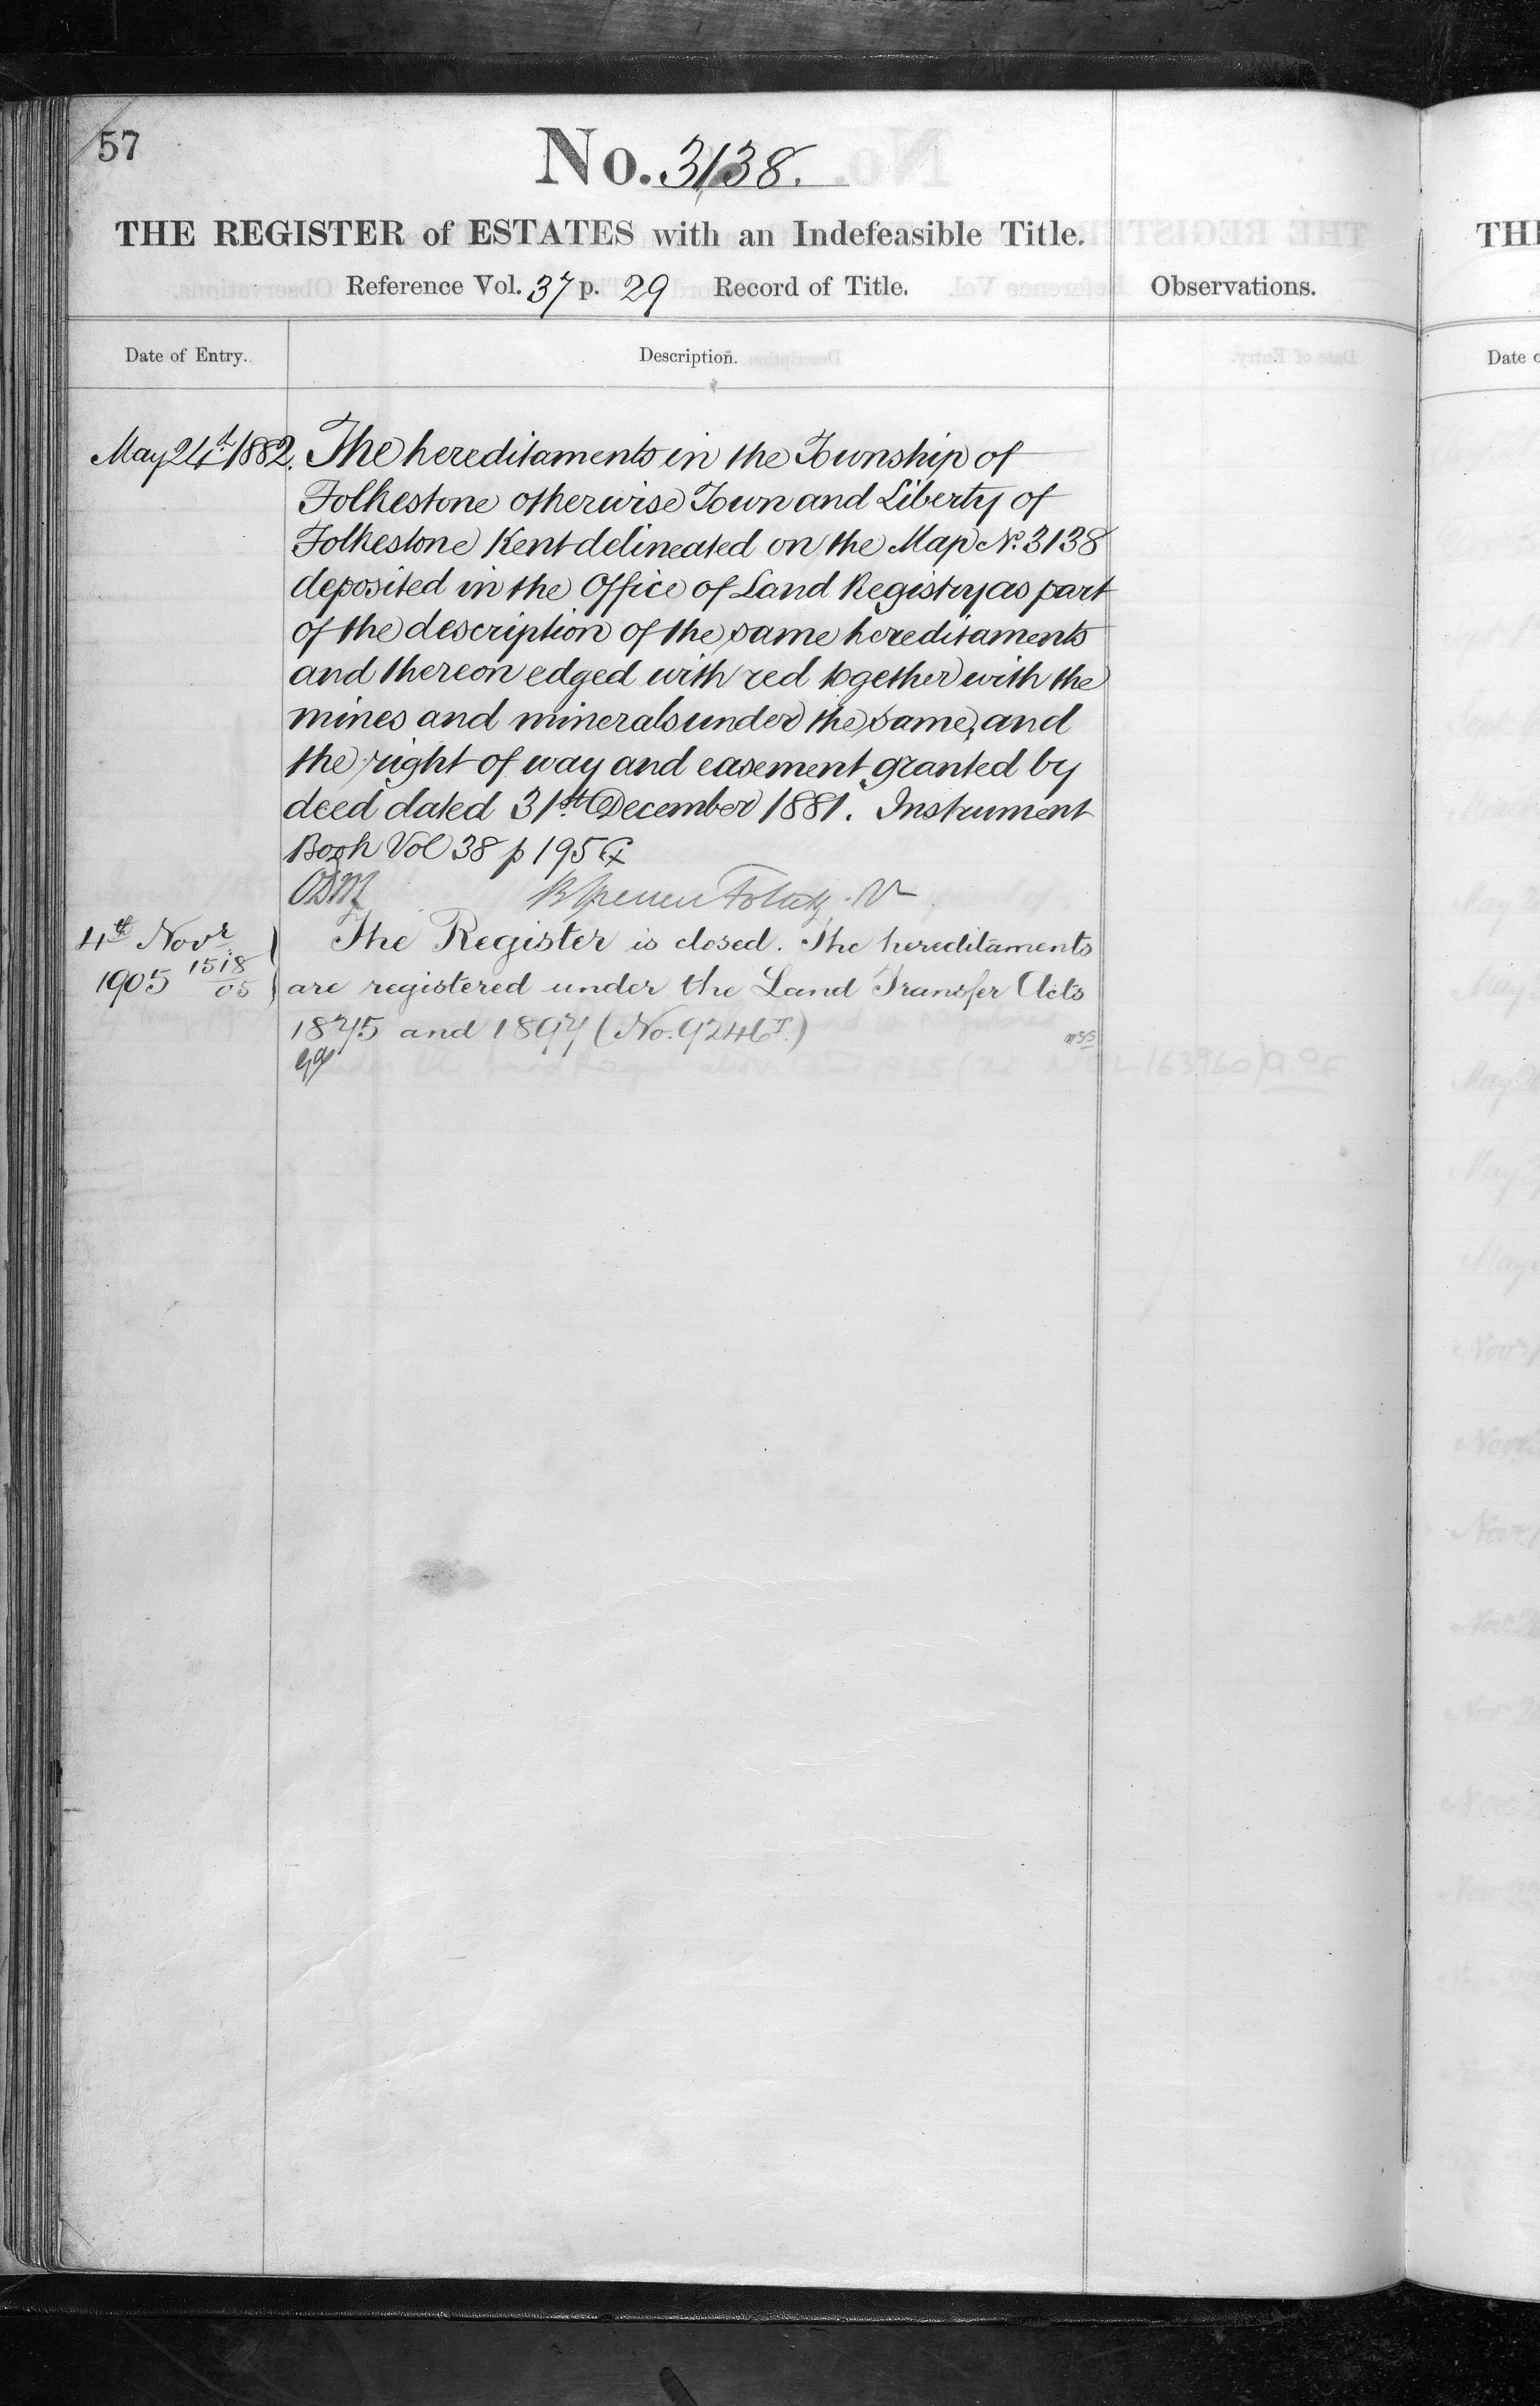 57
No. 3138.
THE REGISTER of ESTATES with an Indefeasible Title.
Reference Vol. 37 p. 29 Record of Title.
Observations.
Date of Entry.
Description.
May 24th 1882. The hereditaments in the Township of
Folkestone otherwise Town and Liberty of
Folkestone Kent delineated on the Map No. 3138
deposited in the Office of Land Registry as part
of the description of the same hereditaments
and thereon edged with red together with the
mines and minerals under the same, and
the right of way and easement granted by
deed dated 31st December 1881. Instrument
Book Vol 38 p 195
4th Novr The Register is closed. The hereditaments
1905 1518/05 are registered under the Land Transfer Acts
1875 and 1897 (No. 9246 T.)
THE
Date o